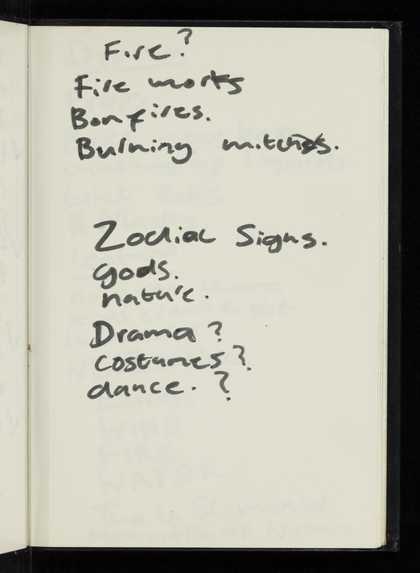 Fire?
Fire works
Bonfires.
Burning witches.
Zodiac Signs.
Gods.
nature.
Drama?
costumes?
dance. ?